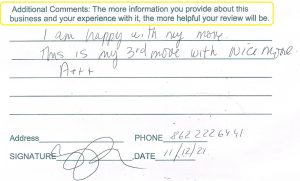 Additional Comments: The more information you provide about this
business and your experience with it, the more helpful your review will be.
I am happy with my move.
This is my 3rd move with Nice Move.
A+++
Address PHONE 862 222 6441
SIGNATURE DATE 11/12/21